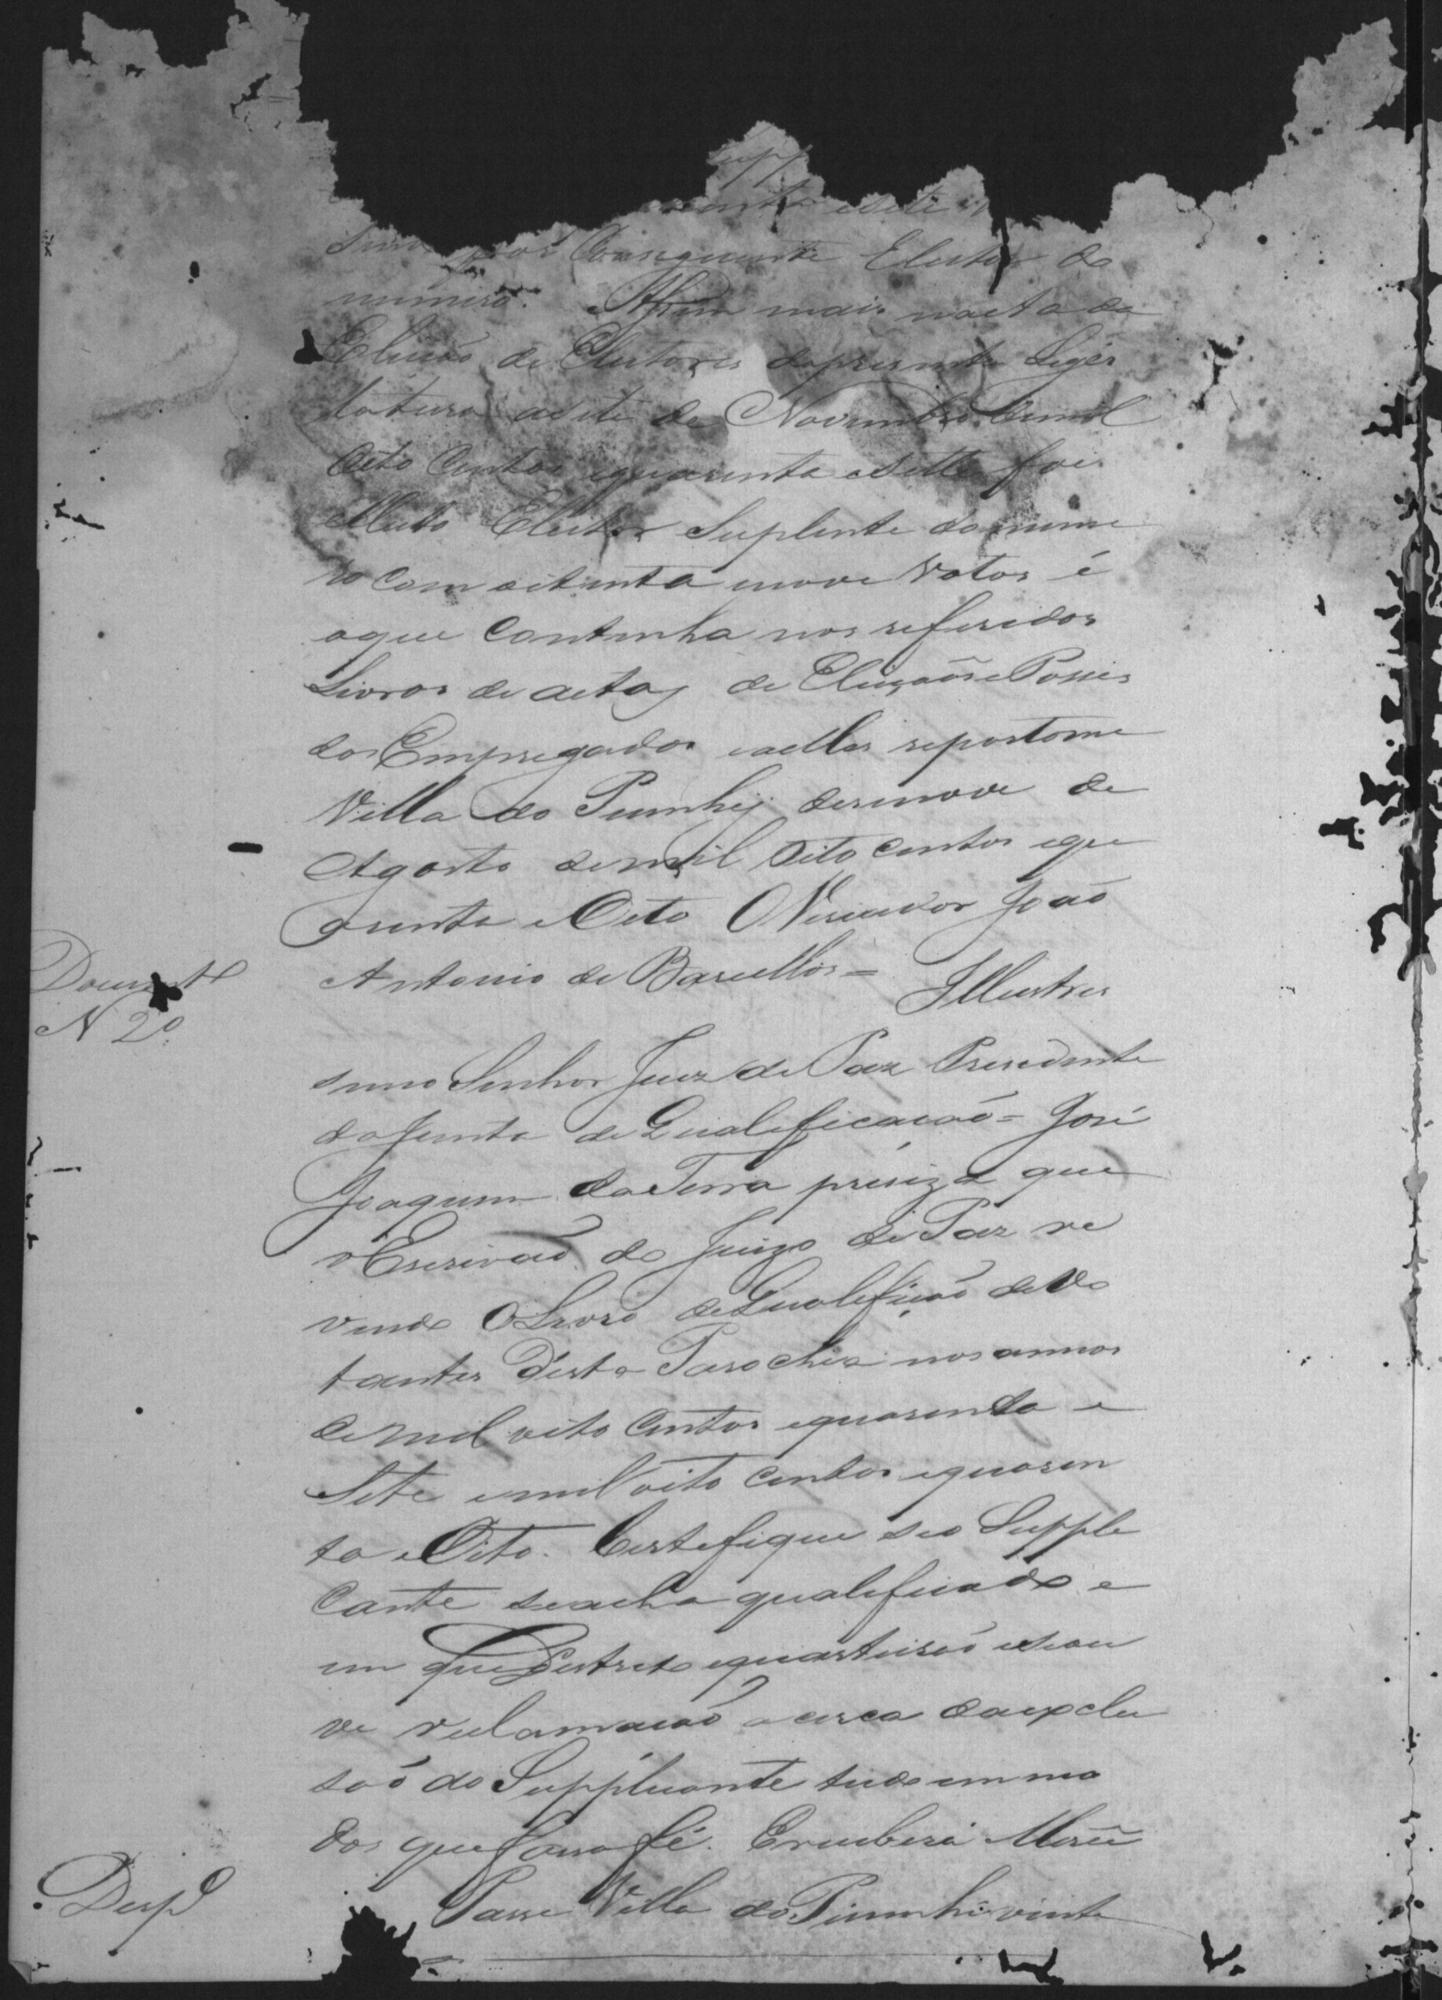 Supp
por Consequinte Eleitor do
numero. Afirm mais nacta da
Eleicão de Eleitores dapresente Legis
latura asete de Novembro demil
Oito Centos equarenta eSette foi
Eleito Eleitor Suplente donume
ro com setenta enove Votos é
oque Continha nos referidos
Livros de actas de Eleiçoẽs e Posses
dos Empregados eaelles reportome
Villa do Piumhij desenove de
Agosto demil Oito centos equa
renta eOito O Veriador João
Antonio de Barcellos =
Documto
N 2º
Illustris
simo Senhor Juiz de Paz Presidente
daJunta de Qualificacaõ = José
Joaquim da Terra preciza que
o Escrivaõ do Juizo de Paz re
vendo O Livro de Qualificaõ de Vo
tantes D'esta Parochia nos annos
de mil oito Centos equarenta e
Sete emil oito centos equaren
ta eOito. Certefique seo Supple
Cante seacha qualeficado e
em que Destrito equarteiraõ esehou
ve reclamacaõ acerca daexclu
saõ do Supplicante tudo em mo
dos quefaça fé. E receberá Mercê
Despº
Passe Villa do Piumhi vinte